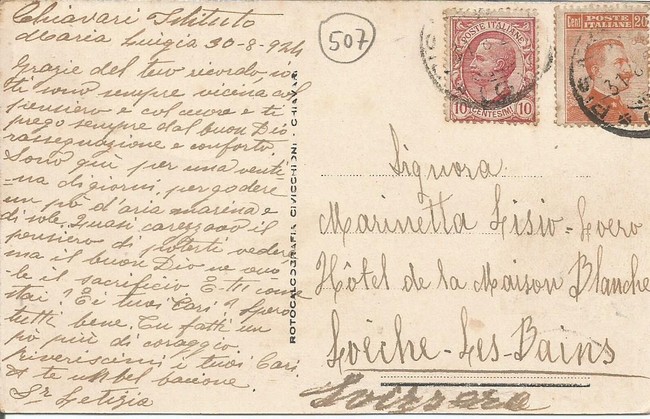 Chiavari Istituto
Maria Luigia 30-8-924
Grazie del tuo ricordo, io
ti sono sempre vicina col
pensiero e col cuore e ti
prego sempre dal buon Dio
rassegnazione e conforto.
Sono qui per una venti-
na di giorni, per godere
un pò d'aria marina e
di sole. Quasi carezzavo il
pensiero di poterti vedere
ma il buon Dio ne vuo-
le il sacrificio. E tu come
stai? E i tuoi Cari? Spero
tutti bene. Tu fatti un
pò più di coraggio.
Riveriscimi i tuoi Cari
A te un bel bacione.
Sr Letizia
507
POSTE ITALIANE
10 CENTESIMI 10
Cent POSTE ITALIANE 20
ROTOCALCOGRAFIA CIVICCHIONI - CHIAVARI
Signora
Marinetta Lisio-Lovero
Hôtel de la Maison Blanche
Loèche-Les-Bains
Svizzera